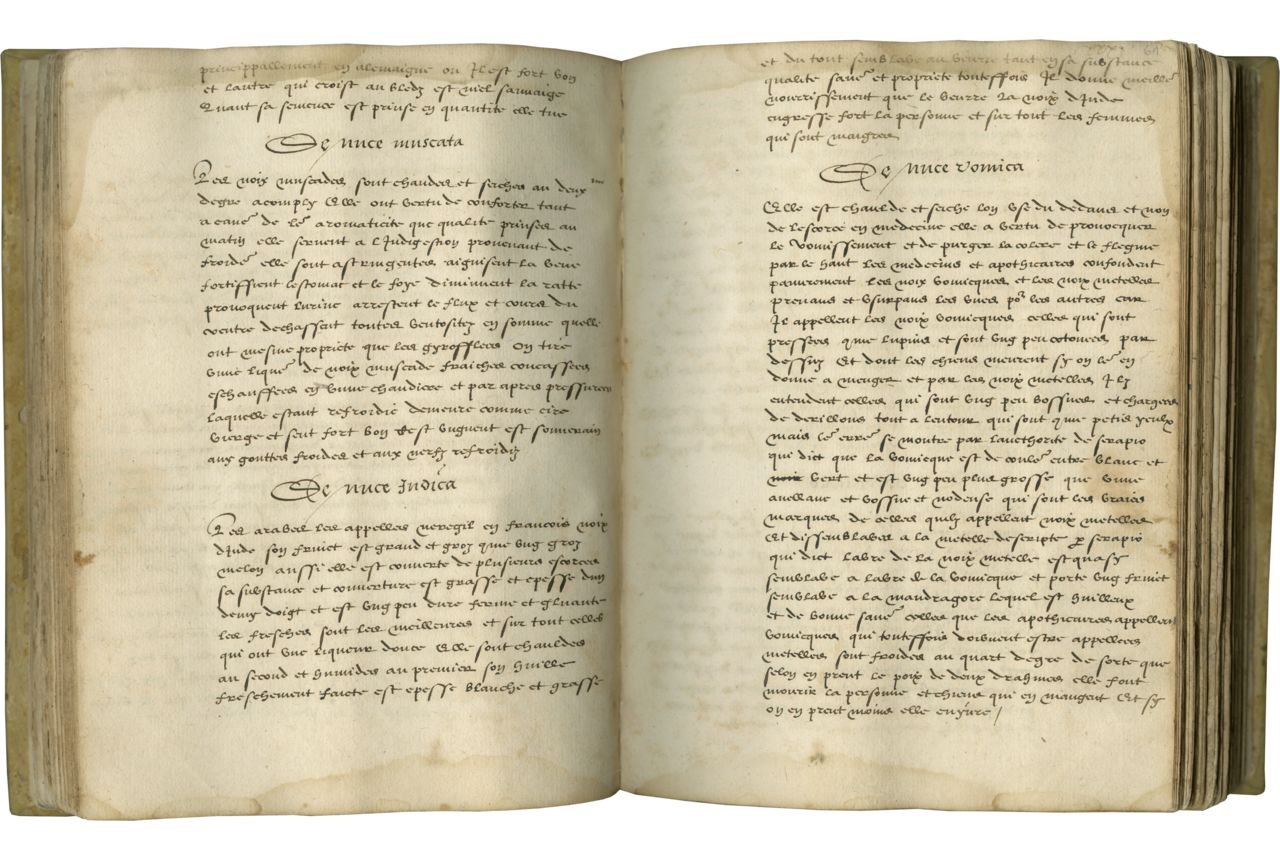 princippallement en alemaigne ou Il est fort bon
et lautre qui croist au bledz est niel sauuaige
Quant sa semence est prinse en quantite elle tue
De nuce muscata
Les noix muscades sont chaudes et seiches au deux me
degre acomply Elle ont vertu de conforter tant
a cause de le aromaticite que qualite prinses au
matin elle seruent a l Indigestion prouenant de
froide elle sont astringentes aiguisent la veue
fortiffient lestomac et le foye diminuent la ratte
prouoquent lurine arrestent le flux et cours du
ventre dechassent toutes ventositez en somme quelle
ont mesme propriete que les gyroffles On tire
vnne liqué de noix muscade fraiches concassees
eschauffees en vnne chaudiere et par apres pressurees
laquelle estant refroidie demeure comme cire
vierge et sent fort bon Cest vnguent est souuerain
aux gouttes froides et aux nerfz refroidiz
De nuce Indica
Les arabes les appelles neregil en francois noix
dInde son fruict est grand et gros que vng gros
melon aussi elle est couuerte de plusieurs escorces
sa substance et couuerture est grasse et epesse dun
demy doigt et est vng peu dure ferme et gluante
les fresches sont les meilleures et sur tout celles
qui ont vne liqueur douce Elle sont chauldes
au second et humides au premier son huille
freschement faicte est epesse blanche et grasse
64
et du tout semblable au beurre tant en sa substance
qualite saue et propriete touteffois Il donne meille
nourrissement que le beurre La noix dInde
engresse fort la personne et sur tout les femmes
qui sont maigres
De nuce vomica
Elle est chaulde et seiche lon vse du dedans et non
de lescorce en medecine elle a vertu de prouocquer
le vomissement et de purger la colere et le flegme
par le hault les medecins et apothicaires confondent
pauurement les noix vomicques et les noix metelles
prenans et vsurpans les vnes por les autres car
Il appellent les noix vomicques celles qui sont
pressees que lupins et sont vng peu cotonees par
dessuz Et dont les chiens meurent sy on le en
donne a menger et par les noix metelles Ilz
entendent celles qui sont vng peu bossues et chargees
de derillons tout a lentour qui sont que petis yeulx
mais le erre se montre par laucthorite de serapio
qui dict que la vomicque est de coule entre blanc et
noir vert et est vng peu plus grosse que vnne
auellane et bossue et nodeuse qui sont les vraies
marques de celles quilz appellent noix metelles
Et dissemblables a la metelle descripte p serapio
qui dict labre de la noix metelle est quasy
semblable a labre de la vomicque et porte vng fruict
semblable a la mandragore lequel est huilleux
et de bonne saue celles que les apothicaires appellent
vomicques qui touteffois doibuent estre appellees
metelles sont froides au quart degre de sorte que
selon en prent le poix de deux dragmes elle font
mourir la personne et chiens qui en mangent Et sy
on en prent moins elle enyure /